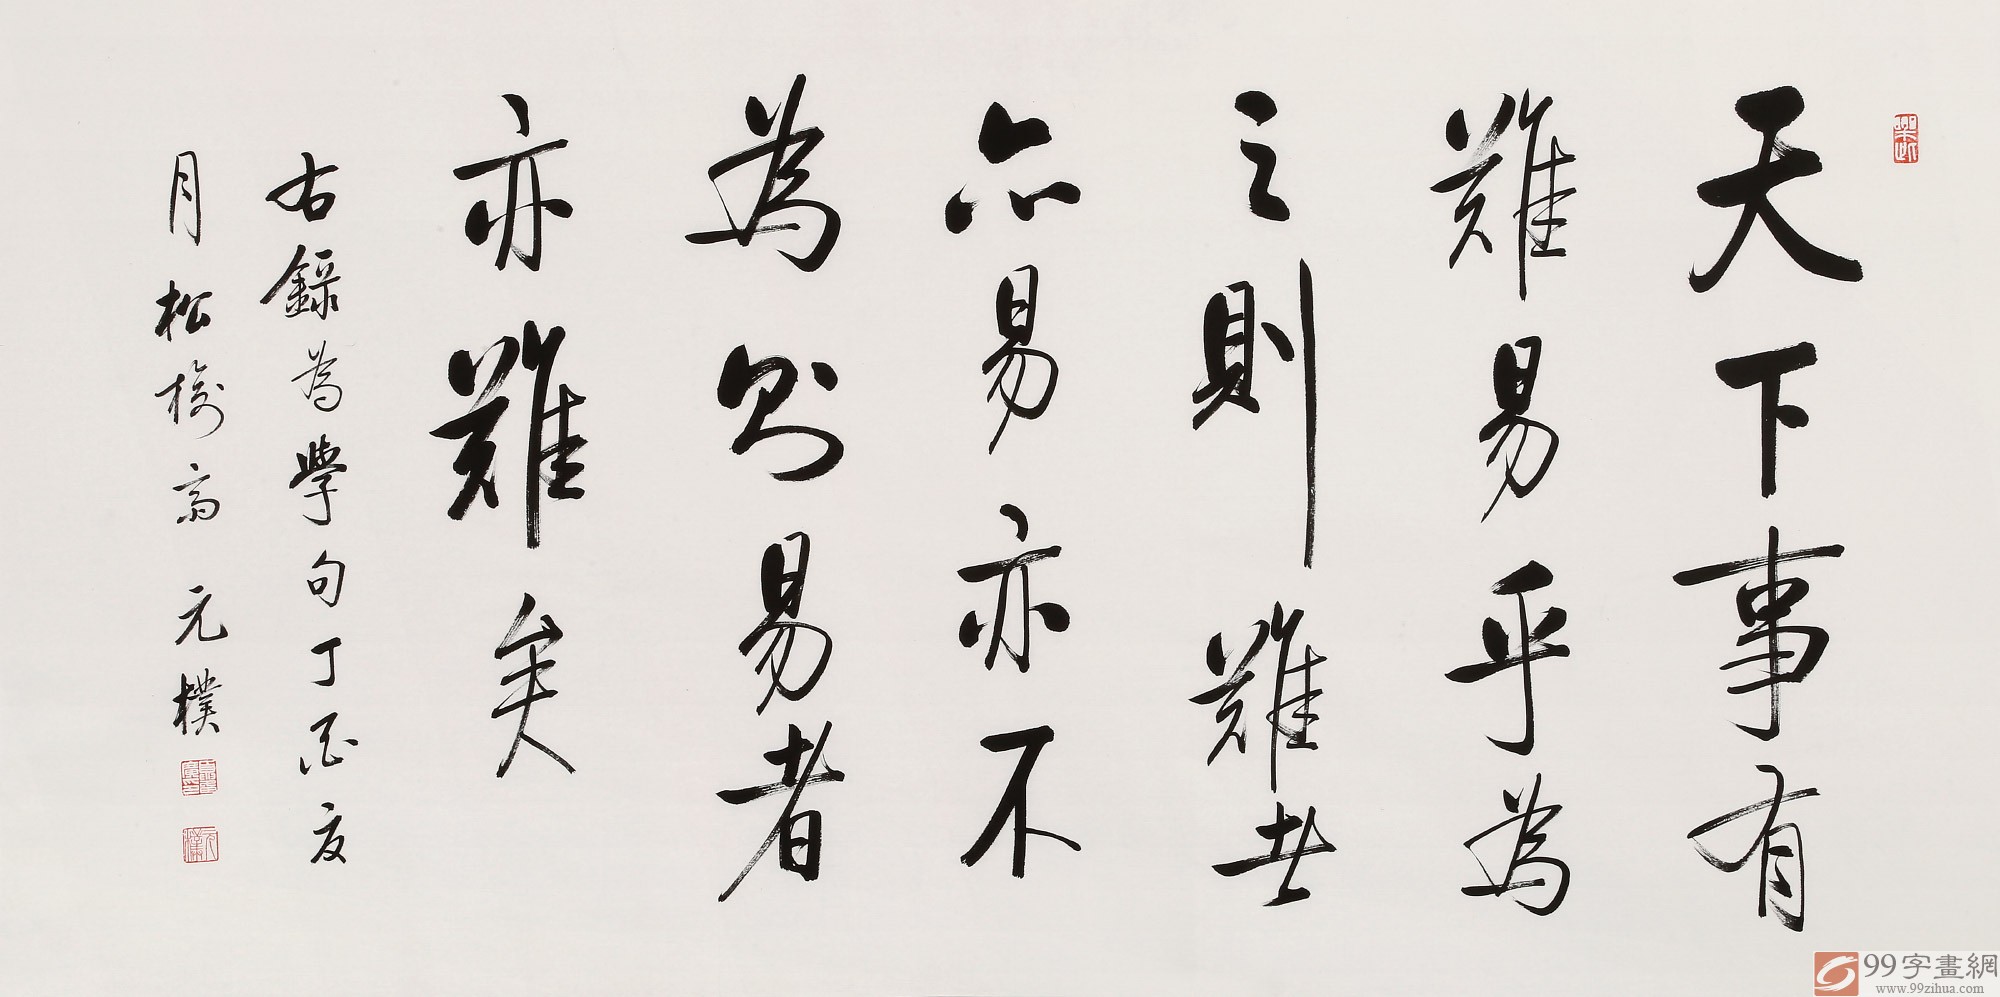 天下事有
難易乎為
之則難者
亦易亦不
為則易者
亦難矣
右錄為學句丁酉夏
月松梅斋元樸
99字畫網
www.99zihua.com